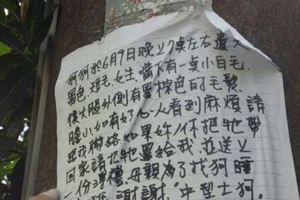 狗狗於6月9日晚上8條左右遺失
黑色,短毛,女生,嘴下有一桌小白毛,
後大腿外側有墨棕色的毛髮,
膽小,如有好心人看到麻煩請
聯絡 如果好你把牠帶
回家請把牠還給我 並送上
一份 禮 母親為了找狗 睡
謝謝 中型土狗.